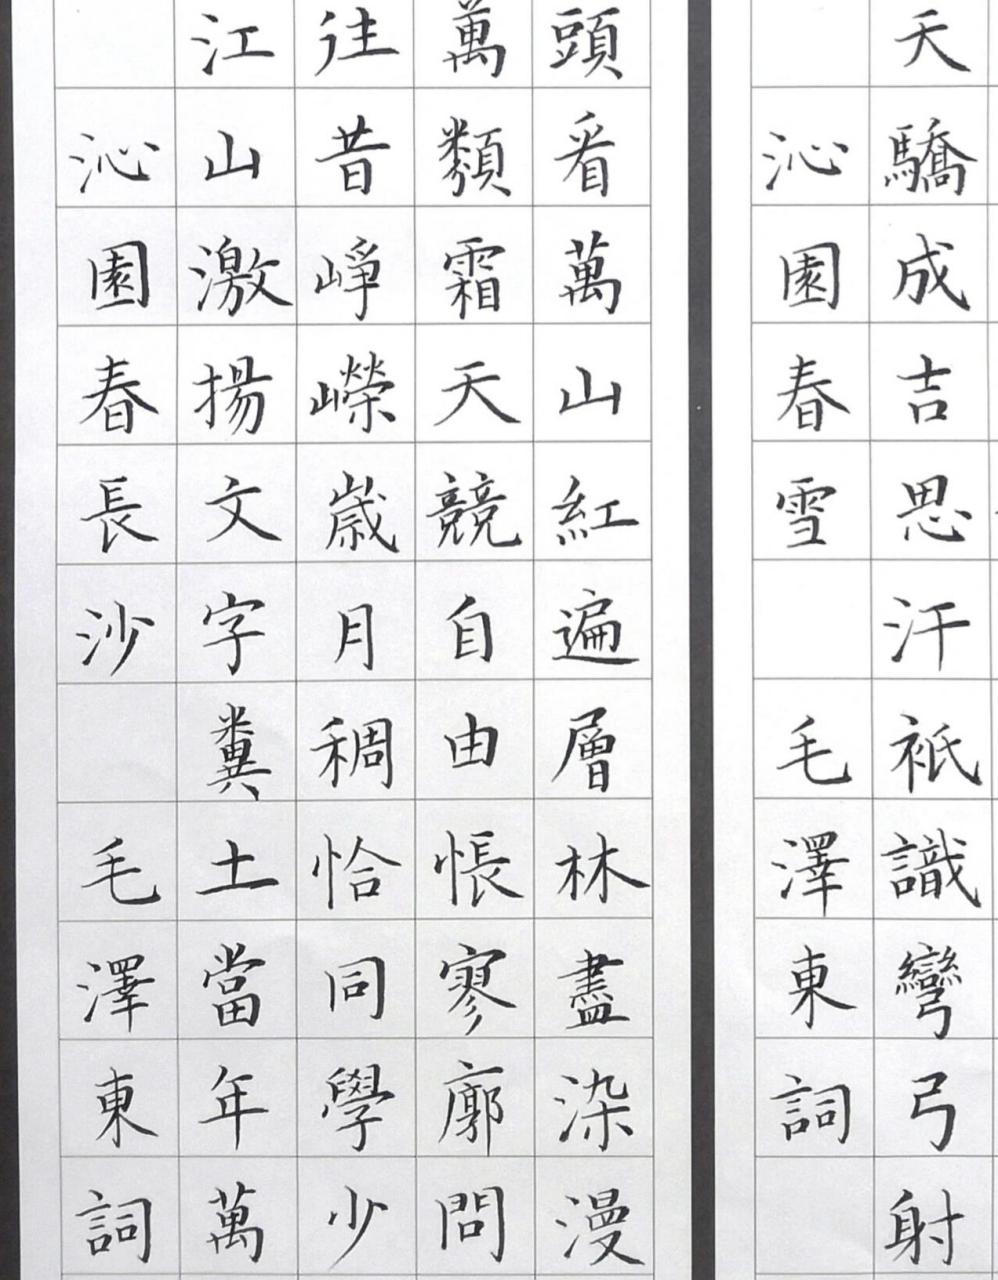 天驕成吉思汗祇識彎弓射
沁園春雪 毛澤東詞
頭看萬山紅遍層林盡染漫
萬類霜天競自由悵寥廓問
往昔崢嶸歲月稠恰同學少
江山激揚文字糞土當年萬
沁園春長沙 毛澤東詞